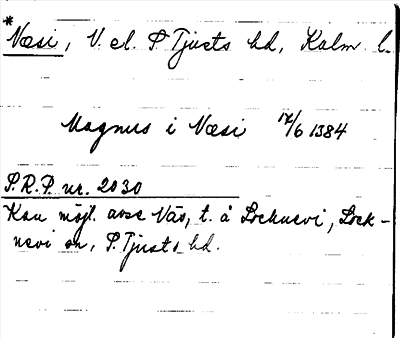 *Næsi, V. el. S Tjusts hd, Kalm. l.
Magnus i Næsi 17/6 1384
S.R.P. nr. 2030
Kan möjl. avse Näs, t. å Locknevi, Lock-
nevi sn, S. Tjusts hd.